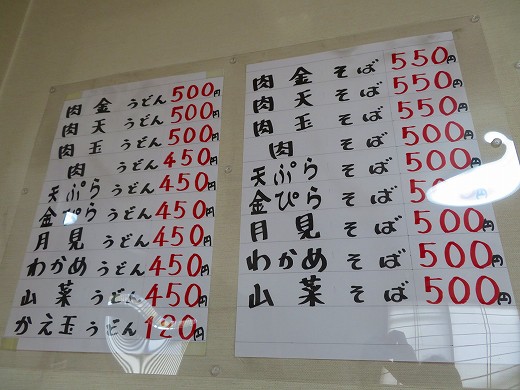 肉金うどん500円
肉天うどん500円
肉玉うどん500円
肉うどん450円
天ぷらうどん450円
金ぴらうどん450円
月見うどん450円
わかめうどん450円
山菜うどん450円
かえ玉うどん120円
肉金そば550円
肉天そば550円
肉玉そば550円
肉そば500円
天ぷらそば500円
金ぴらそば500円
月見そば500円
わかめそば500円
山菜そば500円